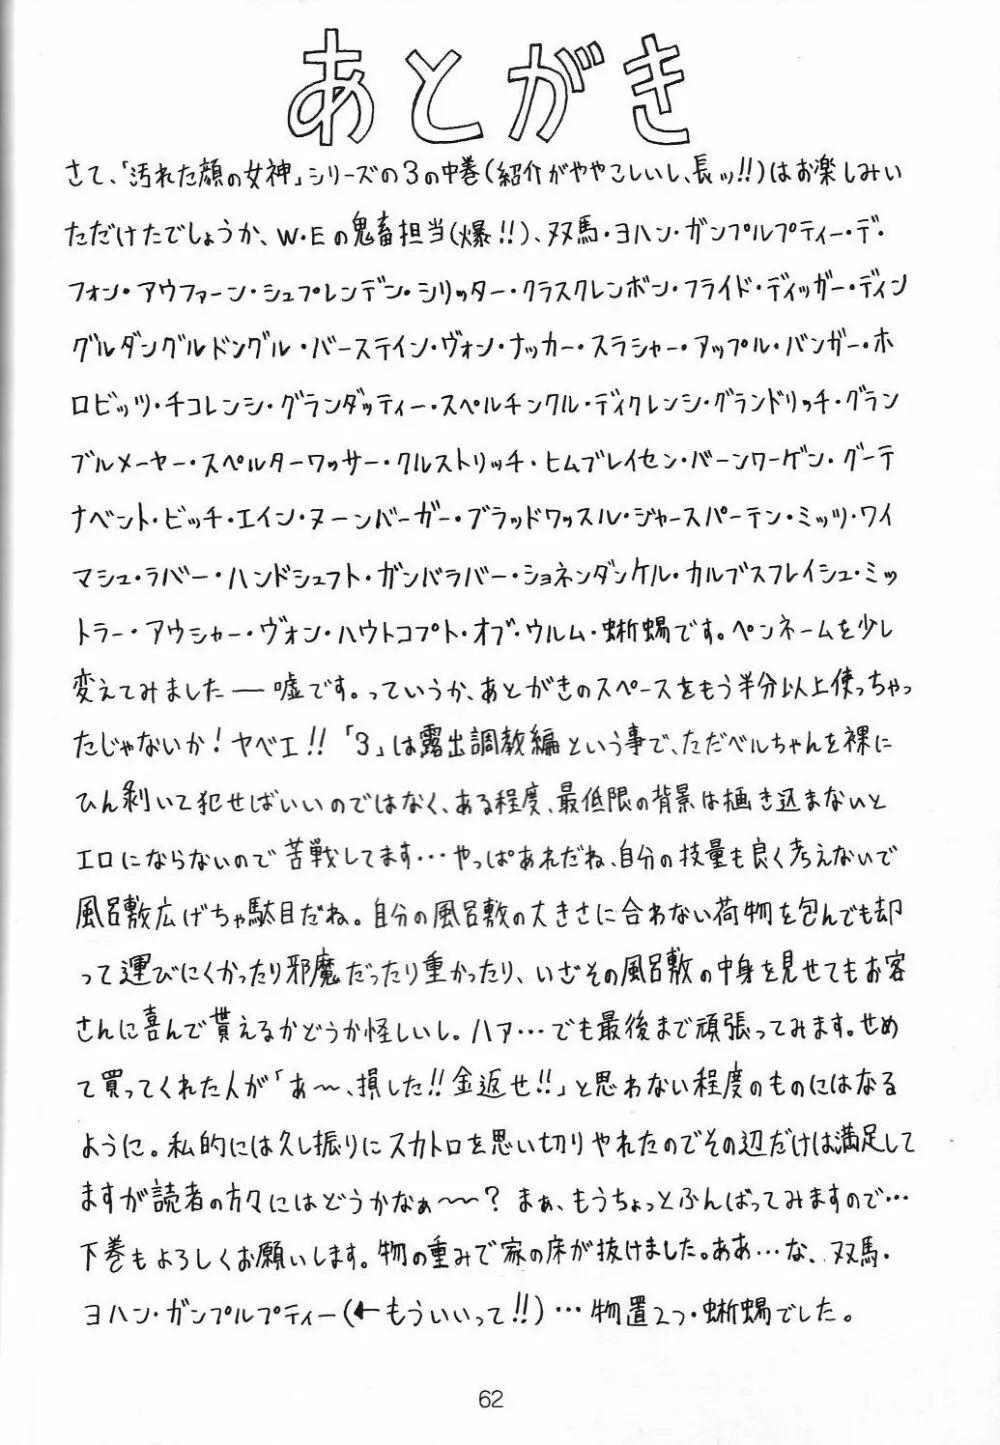 あとがき
さて、「汚れた顔の女神」シリーズの3の中巻(紹介がややこしいし、長ッ!!)はお楽しみい
ただけたでしょうか、W・Eの鬼畜担当(爆!!)、双馬・ヨハン・ガンプルプティー・デ・
フォン・アウファーン・シュプレンデン・シリッター・クラスクレンボン・フライド・ディッガー・ディン
グルダングルドングル・バーステイン・ヴォン・ナッカー・スラシャー・アップル・バンガー・ホ
ロビッツ・チコレンシ・グランダッティー・スペルチンクル・ディクレンシ・グランドリッチ・グラン
ブルメーヤー・スペルターワッサー・クルストリッチ・ヒムブレイセン・バーンワーゲン・グーテ
ナベント・ビッチ・エイン・ヌーンバーガー・ブラッドワッスル・ジャースパーテン・ミッツ・ワイ
マシュ・ラバー・ハンドシュフト・ガンバラバー・ショネンダンケル・カルブスフレイシュ・ミッ
トラー・アウシャー・ヴォン・ハウトコプト・オブ・ウルム・蜥蜴です。ペンネームを少し
変えてみました―嘘です。っていうか、あとがきのスペースをもう半分以上使っちゃっ
たじゃないか!ヤベエ!!「3」は露出調教編という事で、ただベルちゃんを裸に
ひん剥いて犯せばいいのではなく、ある程度、最低限の背景は描き込まないと
エロにならないので苦戦してます…やっぱあれだね、自分の技量も良く考えないで
風呂敷広げちゃ駄目だね。自分の風呂敷の大きさに合わない荷物を包んでも却
って運びにくかったり邪魔だったり重かったり、いざその風呂敷の中身を見せてもお客
さんに喜んで貰えるかどうか怪しいし。ハァ…でも最後まで頑張ってみます。せめ
て買ってくれた人が「あ〜、損した!!金返せ!!」と思わない程度のものにはなる
ように。私的には久し振りにスカトロを思い切りやれたのでその辺だけは満足して
ますが読者の方々にはどうかなぁ〜〜?まぁ、もうちょっとふんばってみますので…
下巻もよろしくお願いします。物の重みで家の床が抜けました。ああ…な、双馬・
ヨハン・ガンプルプティー(←もういいって!!)…物置2つ・蜥蜴でした。
62